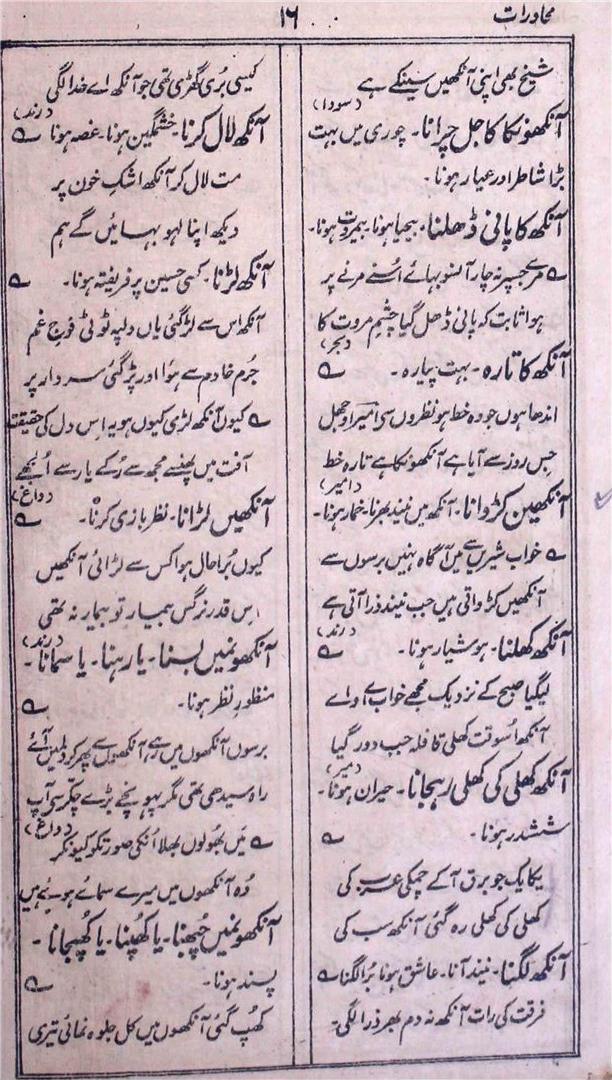 محاورات
۱۶
شیخ بھی اپنی آنکھیں سینکے ہے
(سودا)
آنکھونکا کاجل چرانا۔ چوری میں بہت
بڑا شاطر اور عیار ہونا۔
آنکھ کا پانی ڈھلنا۔ بیحیا ہونا۔ بیمروت ہونا۔
مرے جسپر نہ چار آنسو بہائے اُسنے مرنے پر
ہوا ثابت کہ پانی ڈھل گیا چشمِ مروت کا
آنکھ کا تارہ۔ بہت پیارہ۔
اندھا ہوں جو وہ خط ہو نظروں سی امیر اوجھل
جس روز سے آیا ہے آنکھونکا ہے تارہ خط
(امیر)
آنکھین کڑوانا۔ آنکھ میں نیند بھرنا۔ خمار ہونا۔
خواب شیریں سے میں آگاہ نہیں برسوں سے
آنکھیں کڑواتی ہیں جب نیند ذرا آتی ہے
(رند)
آنکھ کھلنا۔ ہوشیار ہونا۔
لیگیا صبح کے نزدیک مجھے خواب اے وائے
آنکھ اُسوقت کھلی قافلہ جب دور گیا
(میر)
آنکھ کھلی کی کھلی رہجانا۔ حیران ہونا۔
ششدر ہونا۔
یکایک جو برق آکے چمکی عرب کی
کھلی کی کھلی رہ گئی آنکھ سب کی
آنکھ لگنا۔ نیند آنا۔ عاشق ہونا بُرا لگنا
فرقت کی رات آنکھ نہ دم بھر ذرا لگی۔
کیسی بُری گھڑی تھی جو آنکھ اے خدا لگی
(رند)
آنکھ لال کرنا۔ خشمگین ہونا۔ غصہ ہونا
مت لال کر آنکھ اشکِ خون پر
دیکھ اپنا لہو بہائیں گے ہم
آنکھ لڑنا۔ کسی حسین پر فریفتہ ہونا۔
آنکھ اس سے لڑ گئی یاں دلپہ ٹوٹی فوج غم
جُرم خادم سے ہوا اور پڑ گئی سردار پر
کیوں آنکھ لڑی کیوں ہو یہ اس دل کی حقیقت
آفت میں پھنسے مجھ سے رُکے یار سے اُلجھے
(داغ)
آنکھیں لڑانا۔ نظر بازی کرنا۔
کیوں بُرا حال ہوا کس سے لڑائی آنکھیں
اس قدر نرگس بیمار تو بیمار نہ تھی
(رند)
آنکھونمیں بسنا۔ یا رہنا۔ یا سمانا۔
منظورِ نظر ہونا۔
برسوں آنکھوں میں رہے آنکھوں سے پھر کر دلمیں آئے
راہ سیدھی تھی مگر پہونچے بڑے چکر سی آپ
(داغ)
میں بھولوں بھلا اُنکی صورتکو کیونکر
وُہ آنکھوں میں میرے سمائے ہوئے ہیں
آنکھونمیں چُبھنا۔ یا کھُبنا۔ یا کھُبجانا۔
پسند ہونا۔
کھُپ گئی آنکھوں میں کل جلوہ نمائی تیری